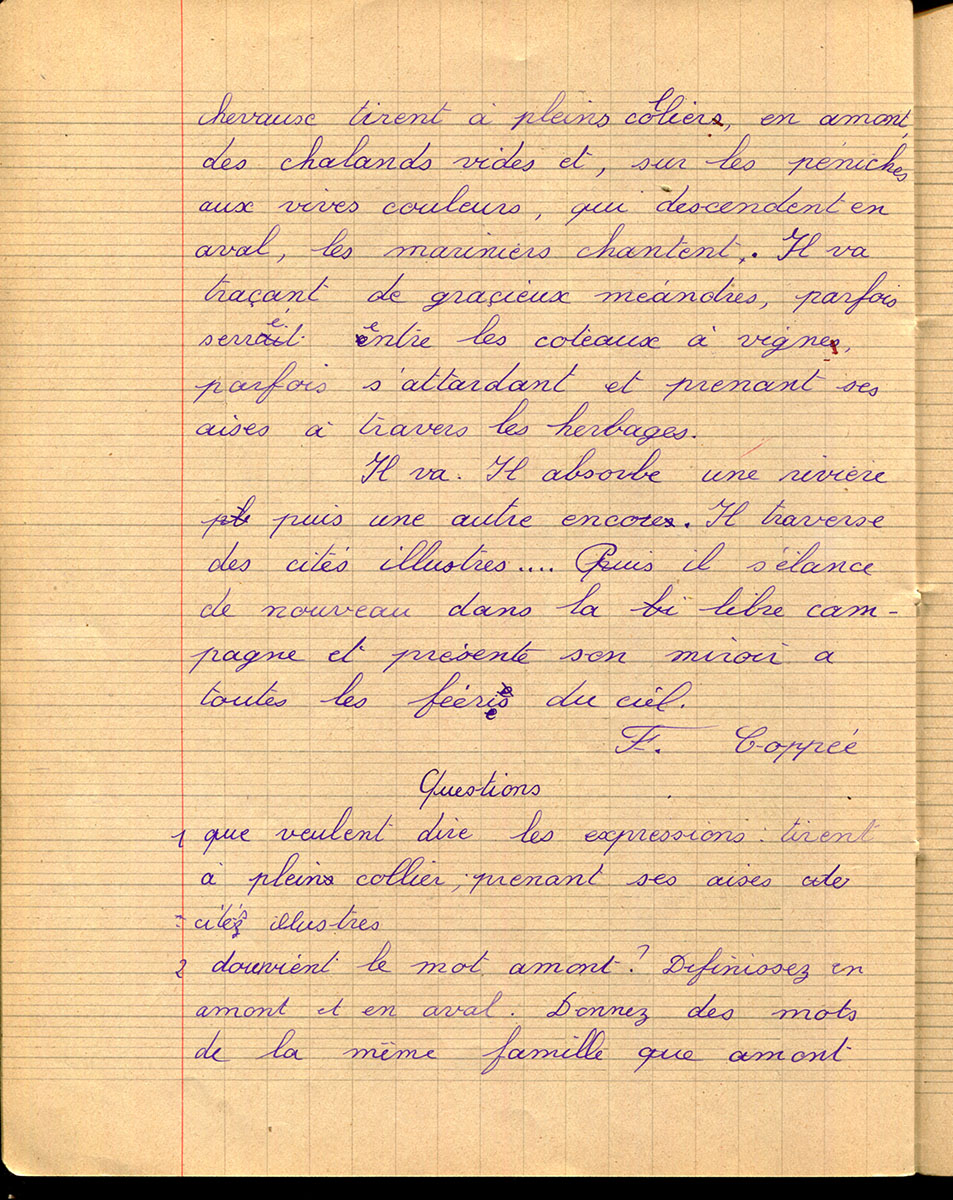 chevaux tirent à pleins colliers, en amont,
des chalands vides et, sur les péniches
aux vives couleurs, qui descendent en
aval, les mariniers chantent. Il va
traçant de graçieux méandres, parfois
serré entre les coteaux à vignes,
parfois s'attardant et prenant ses
aises à travers les herbages.
Il va. Il absorbe une rivière
puis une autre encore. Il traverse
des cités illustres.... Puis il s'élance
de nouveau dans la libre cam-
pagne et présente son miroir a
toutes les féeries du ciel.
F. Coppée
Questions
1 que veulent dire les expressions : tirent
à plein collier, prenant ses aises
cités illustres
2 douvient le mot amont ? Définissez en
amont et en aval. Donnez des mots
de la même famille que amont